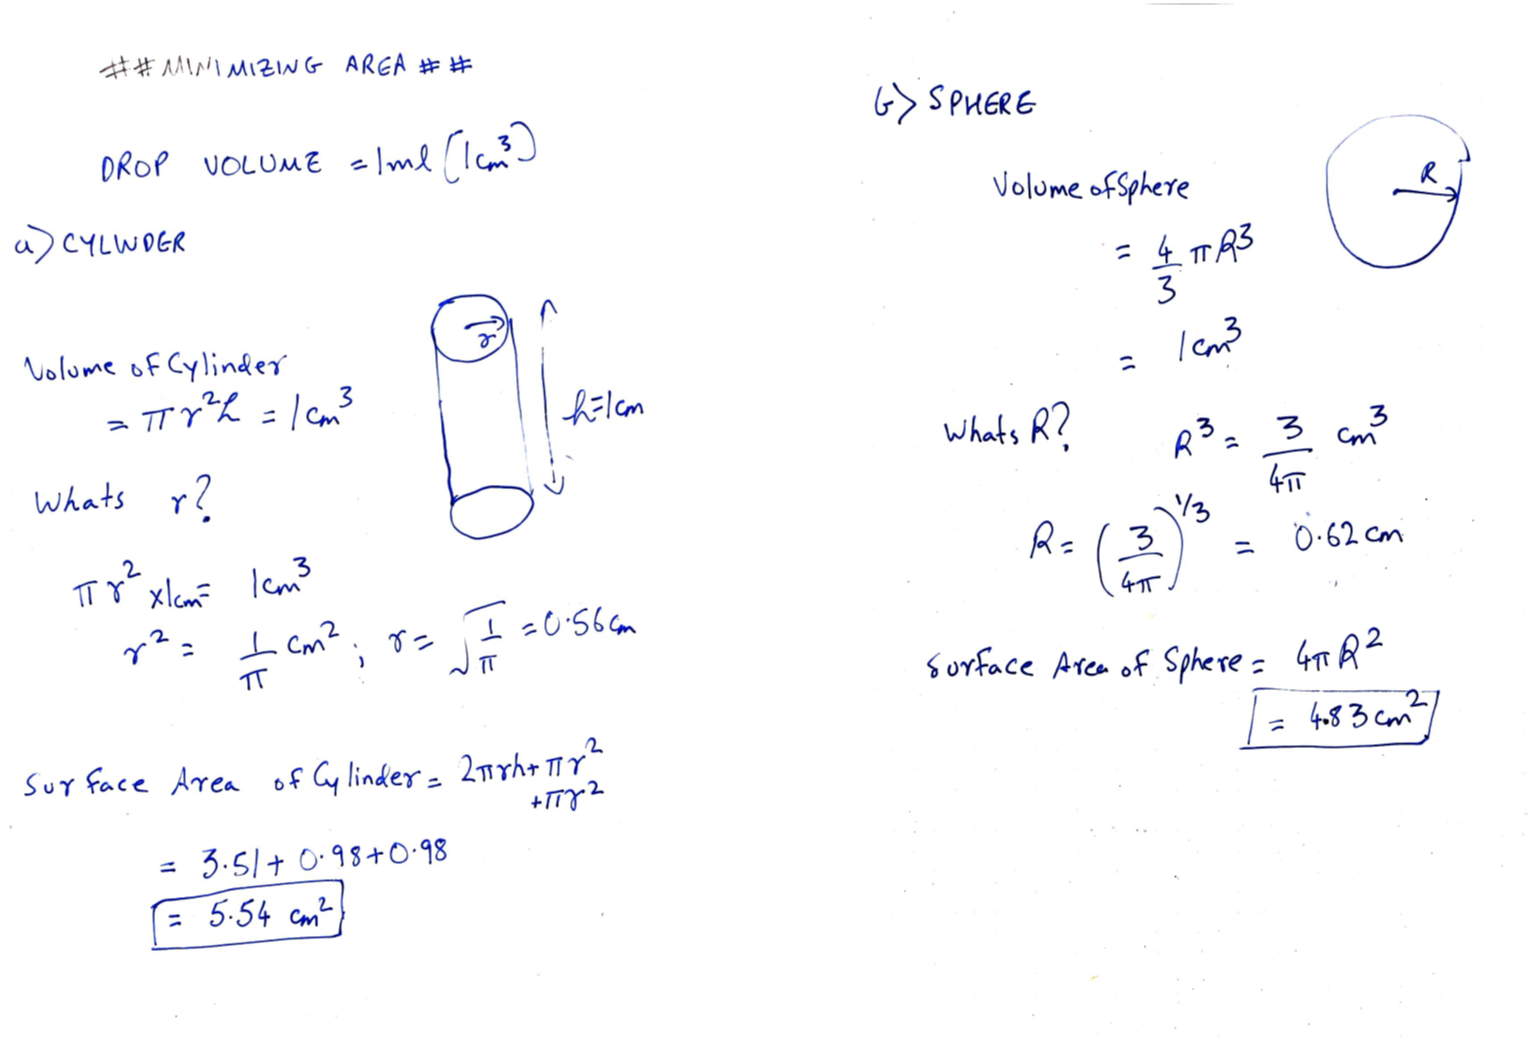 ## MINIMIZING AREA ##
DROP VOLUME = 1ml (1cm³)
a) CYLINDER
r
h=1cm
Volume of Cylinder
= πr²h = 1cm³
Whats r?
πr² x1cm= 1cm³
r² = 1/π cm² ; r= √(1/π) =0.56cm
Surface Area of Cylinder = 2πrh+πr²
+πr²
= 3.51+0.98+0.98
= 5.54 cm²
b) SPHERE
R
Volume of Sphere
= 4/3 πR³
= 1cm³
Whats R? R³ = 3/4π cm³
R= (3/4π)^1/3 = 0.62cm
Surface Area of Sphere = 4πR²
= 4.83cm²